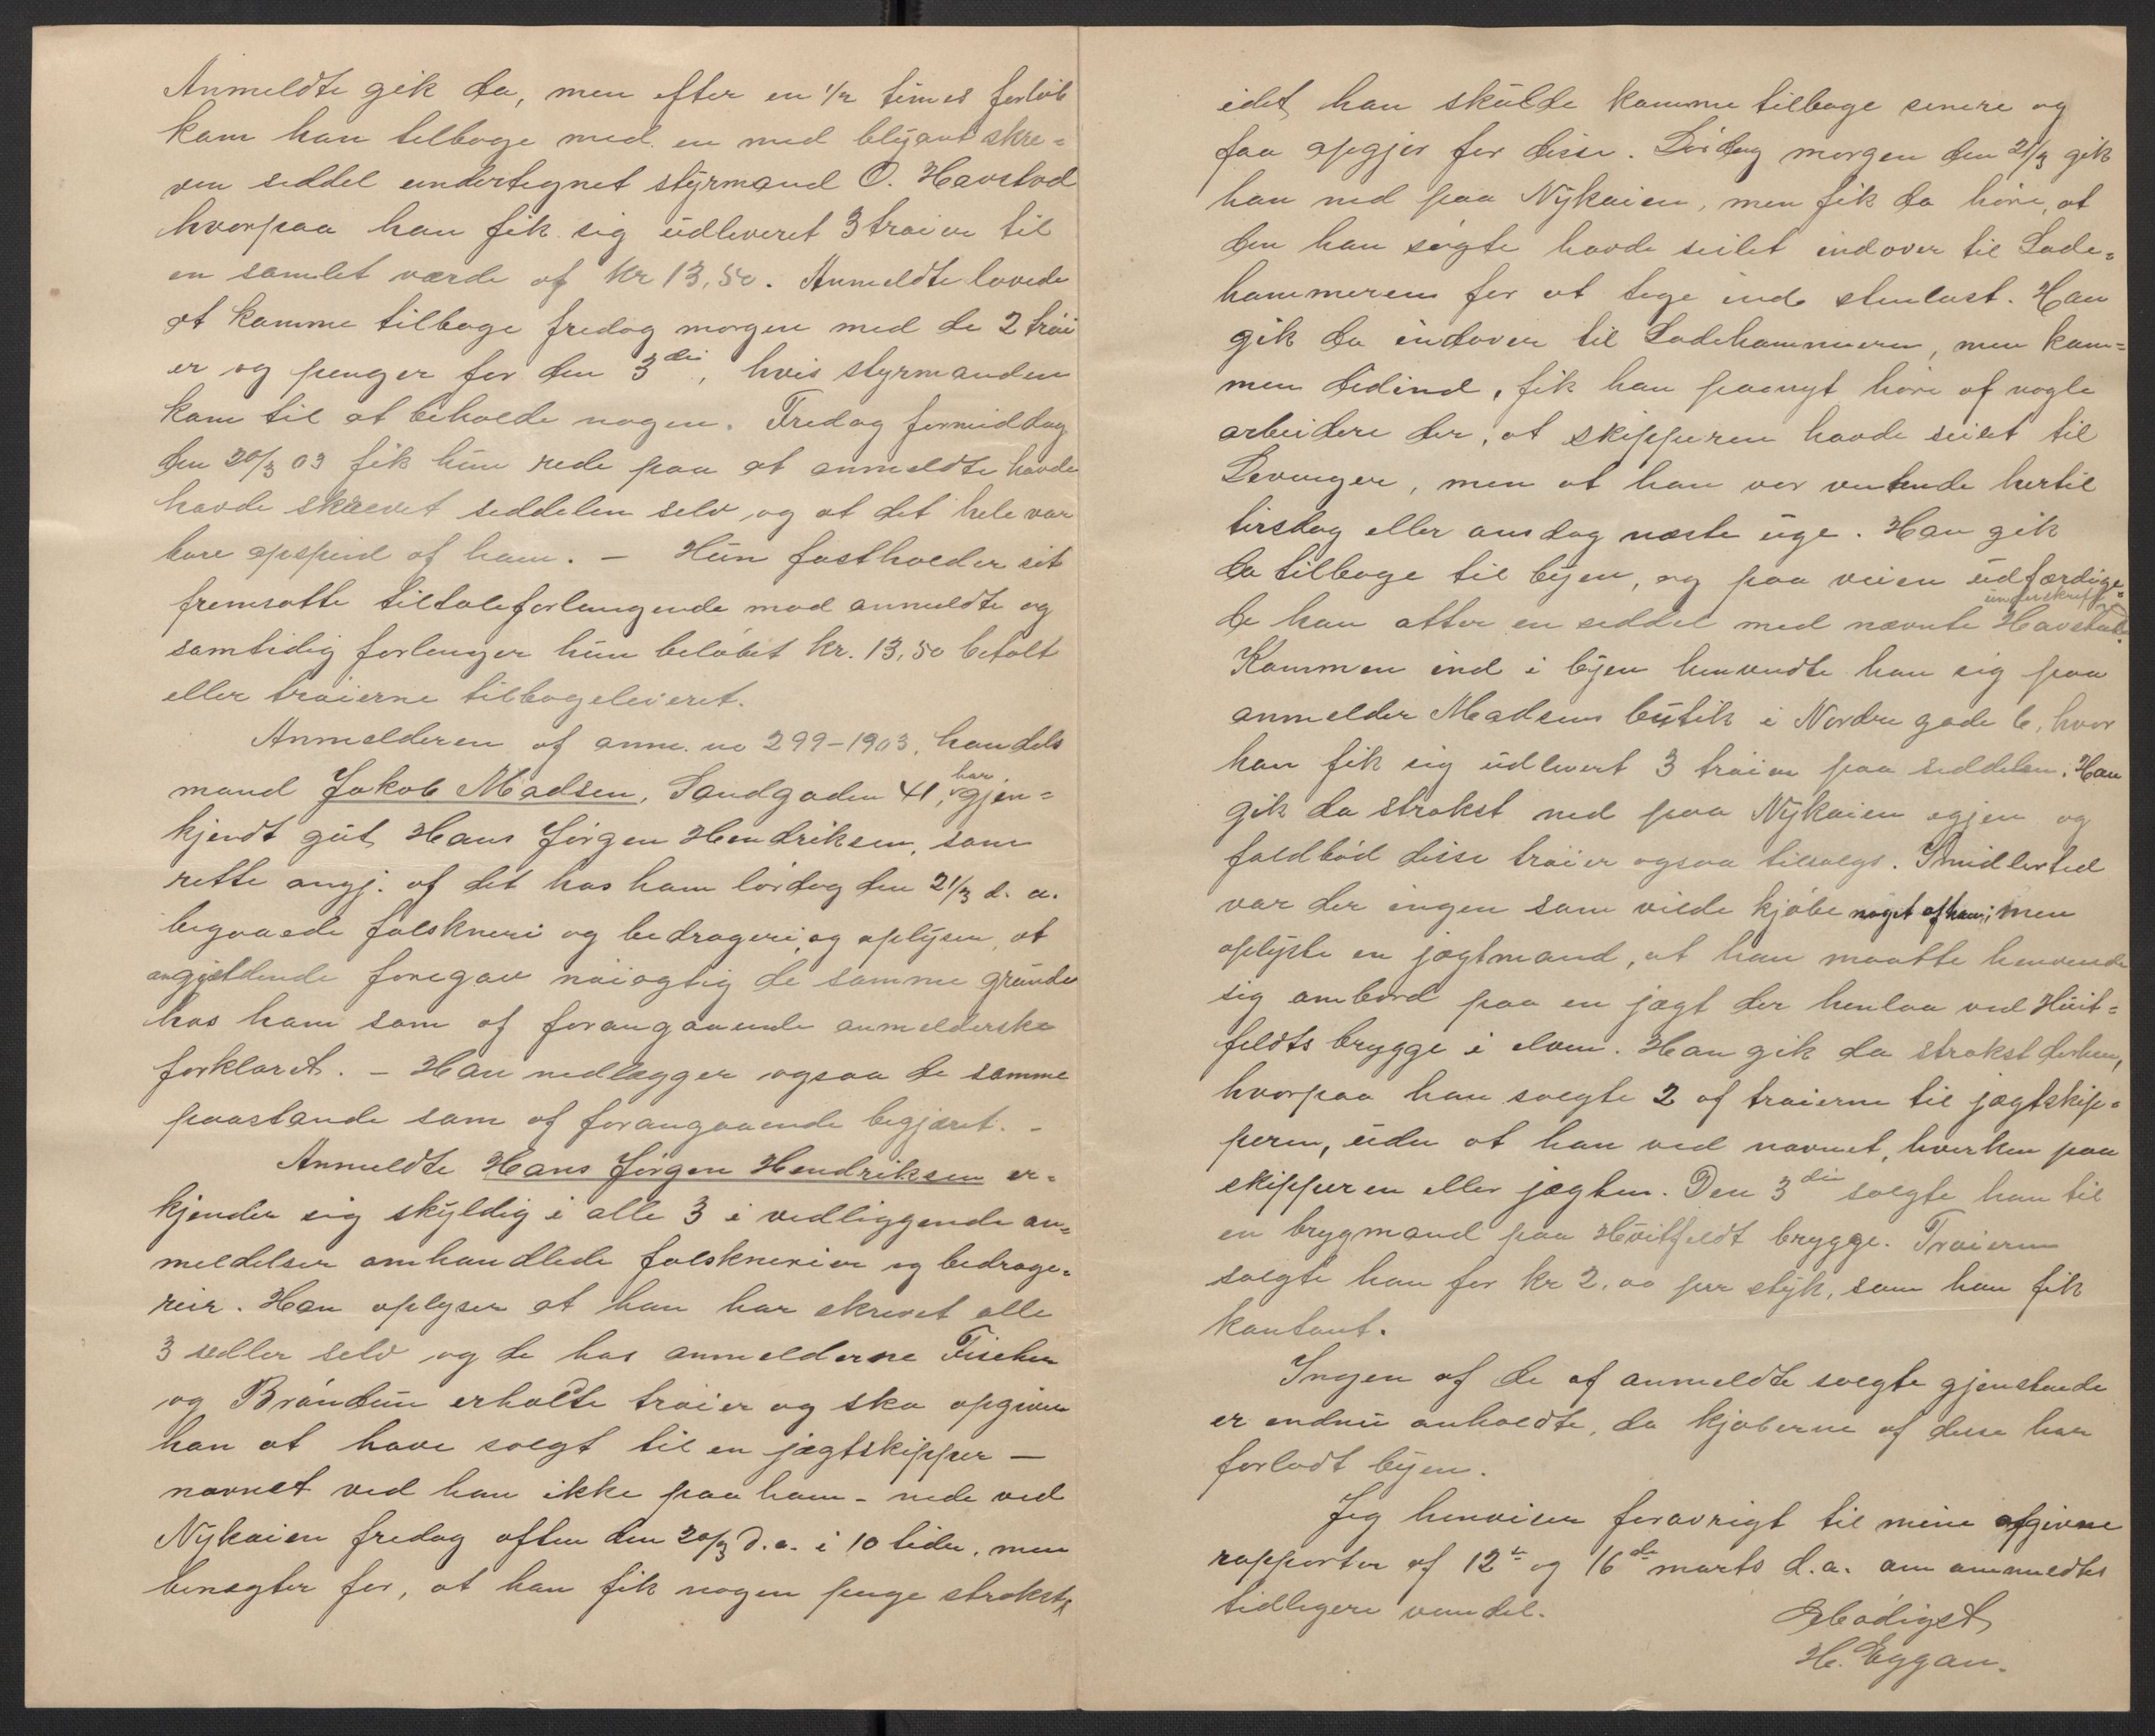 Anmeldte gik da, men efter en 1/2 times forløb
kom han tilbage med en med blyant skre=
ven seddel undertegnet styrmand O. Havstad
hvorpaa han fik sig udleveret 3 trøier til
en samlet værde af kr 13,50. Anmeldte lovede
at komme tilbage fredag morgen med de 2 trøi
er og penger for den 3die, hvis styrmanden
kom til at beholde nogen. Fredag formiddag
den 20/3 03 fik hun rede paa at anmeldte havde
havde skrevet seddelen selv og at det hele var
bare opspind af ham. – Hun fastholder sit
fremsatte tiltaleforlangende mod anmeldte og
samtidig forlanger hun beløbet kr. 13,50 betalt
eller trøierne tilbageleveret.
Anmelderen af anm. no 299-1903, handels
mand Jakob Madsen, Sandgaden 41, har gjen=
kjendt gut Hans Jørgen Hendriksen, som
rette angj. af det hos ham lørdag den 21/3 d. a.
begaaede falskneri og bedrageri, og oplyser, at
angjældende foregav nøiagtig de samme grunde
hos ham som af forangaaende anmelderske
forklaret. – Han nedlægger ogsaa de samme
paastande som af forangaaende begjæret. –
Anmeldte Hans Jørgen Hendriksen er=
kjender sig skyldig i alle 3 i vedliggende an=
meldelser omhandlede falsknerier og bedrage=
rier. Han oplyser at han har skrevet alle
3 sedler selv og de hos anmelderne Fischer
og Brándún erholdte trøier og sko opgiver
han at have solgt til en jægtskipper –
navnet ved han ikke paa ham – nede ved
Nykaien fredag aften den 20/3 d. a. i 10 tiden, men
benægter for, at han fik nogen penge strakst,
idet han skulde komme tilbage senere og
faa opgjør for disse. Lørdag morgen den 21/3 gik
han ned paa Nykaien, men fik da høre, at
den han søgte havde seilet indover til Lade=
hammeren for at tage ind stenlast. Han
gik da indover til Ladehammeren, men kom=
men didind, fik han paanyt høre af nogle
arbeidere der, at skipperen havde seilet til
Levanger, men at han var ventende hertil
tirsdag eller onsdag næste uge. Han gik
da tilbage til byen, og paa veien udfærdige=
de han atter en seddel med nævnte Havstads underskrift.
Kommen ind i byen henvendte han sig paa
anmelder Madsens butik i Nordre gade 6, hvor
han fik sig udlevert 3 trøier paa seddelen. Han
gik da strakst ned paa Nykaien igjen og
faldbød disse trøier ogsaa tilsalgs. Imidlertid
var der ingen som vilde kjøbe noget af ham; men
oplyste en jægtmand, at han maatte henvende
sig ombord paa en jægt der henlaa ved Huit=
feldts brygge i elven. Han gik da strakst derhen,
hvorpaa han solgte 2 af trøierne til jægtskip=
peren, uden at han ved navnet, hverken paa
skipperen eller jægten. Den 3die solgte han til
en brygmand paa Hvitfeldt brygge. Trøierne
solgte han for kr 2.00 per styk, som han fik
kontant.
Ingen af de af anmeldte solgte gjenstande
er endnu anholdte, da kjøberne af disse har
forladt byen.
Jeg henviser forøvrigt til mine afgivne
rapporter af 12te og 16de marts d. a. om anmeldtes
tidligere vandel.
Ærbødigst
H. Eggan.